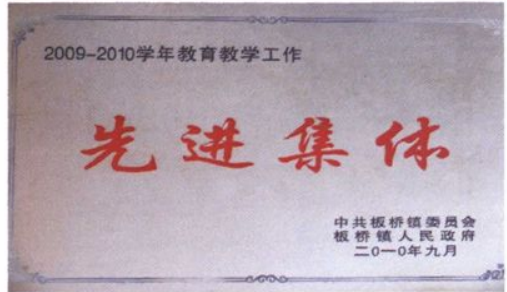 2009-2010学年教育教学工作
先进集体
中共板桥镇委员会
板桥镇人民政府
二0一0年九月